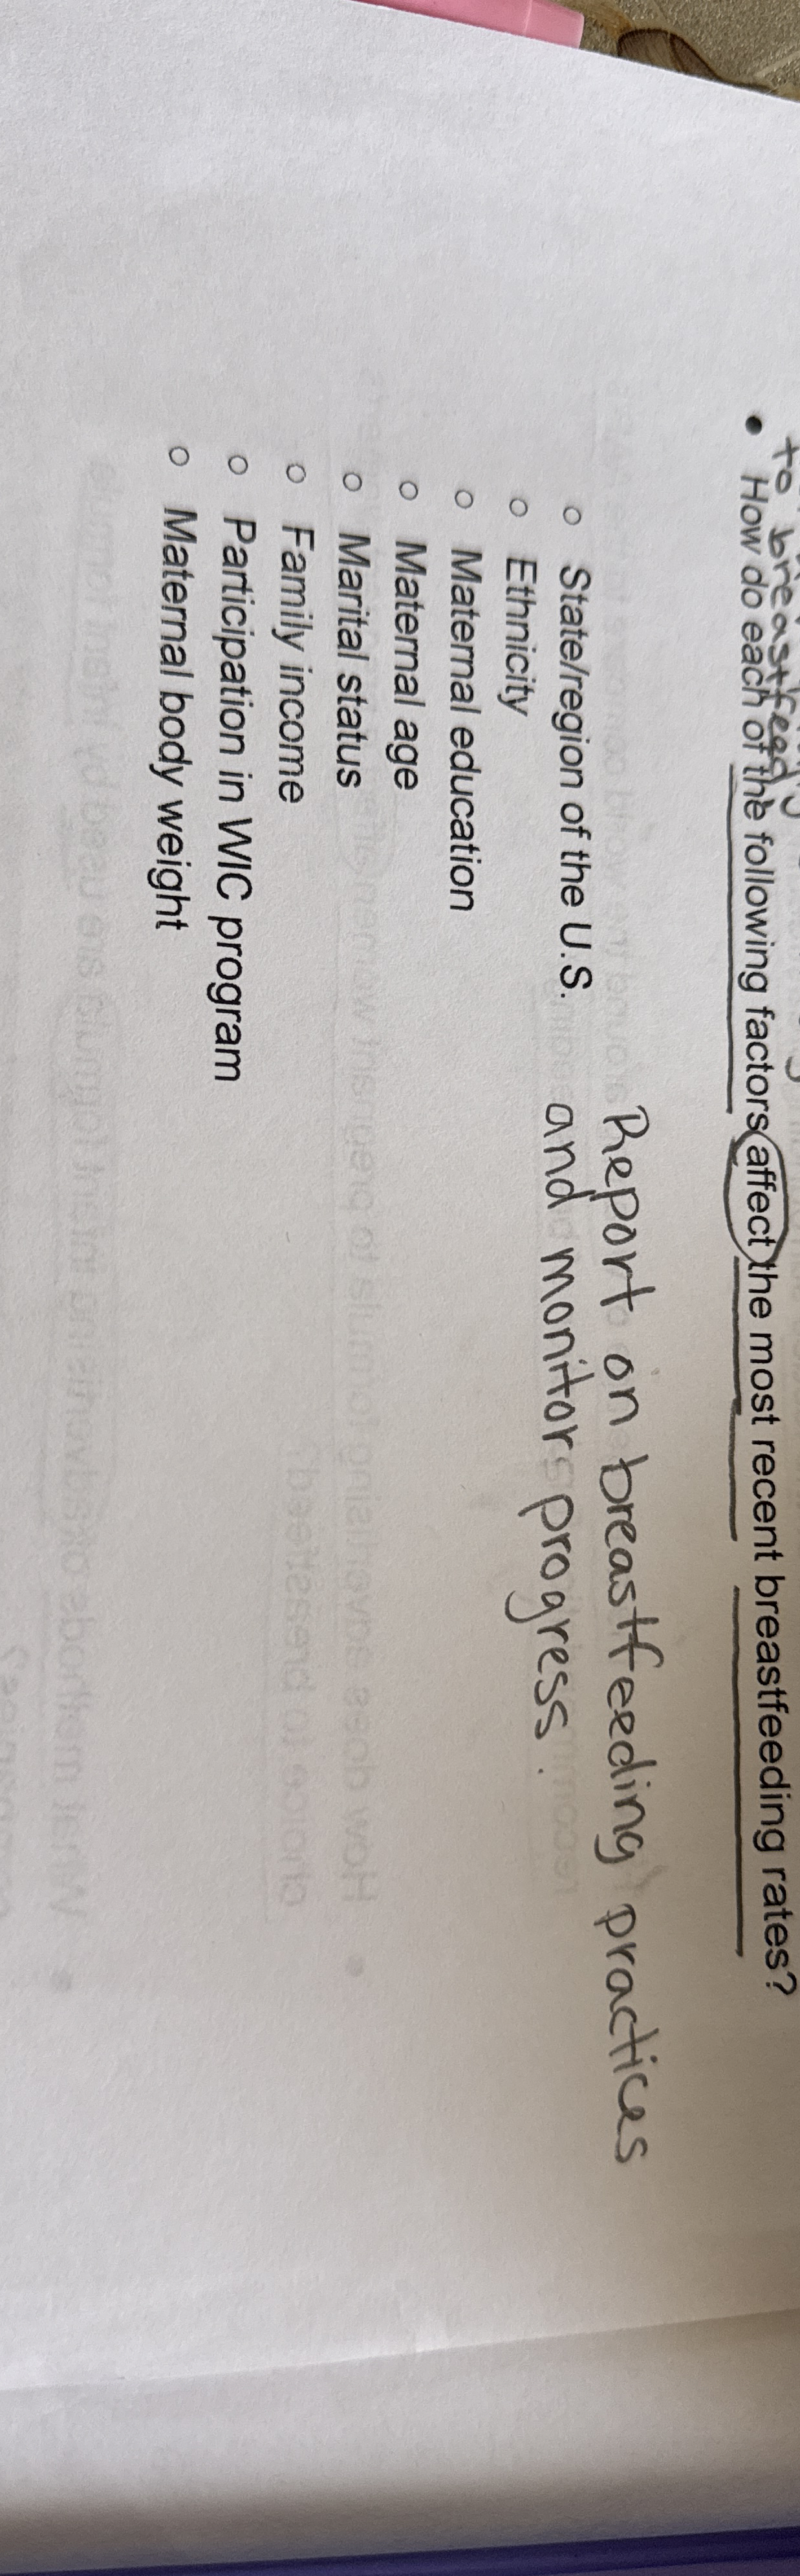 to breastfeed
• How do each of the following factors affect the most recent breastfeeding rates?
○ State/region of the U.S.
○ Ethnicity
○ Maternal education
○ Maternal age
○ Marital status
○ Family income
○ Participation in WIC program
○ Maternal body weight
Report on breastfeeding practices
and monitor progress.